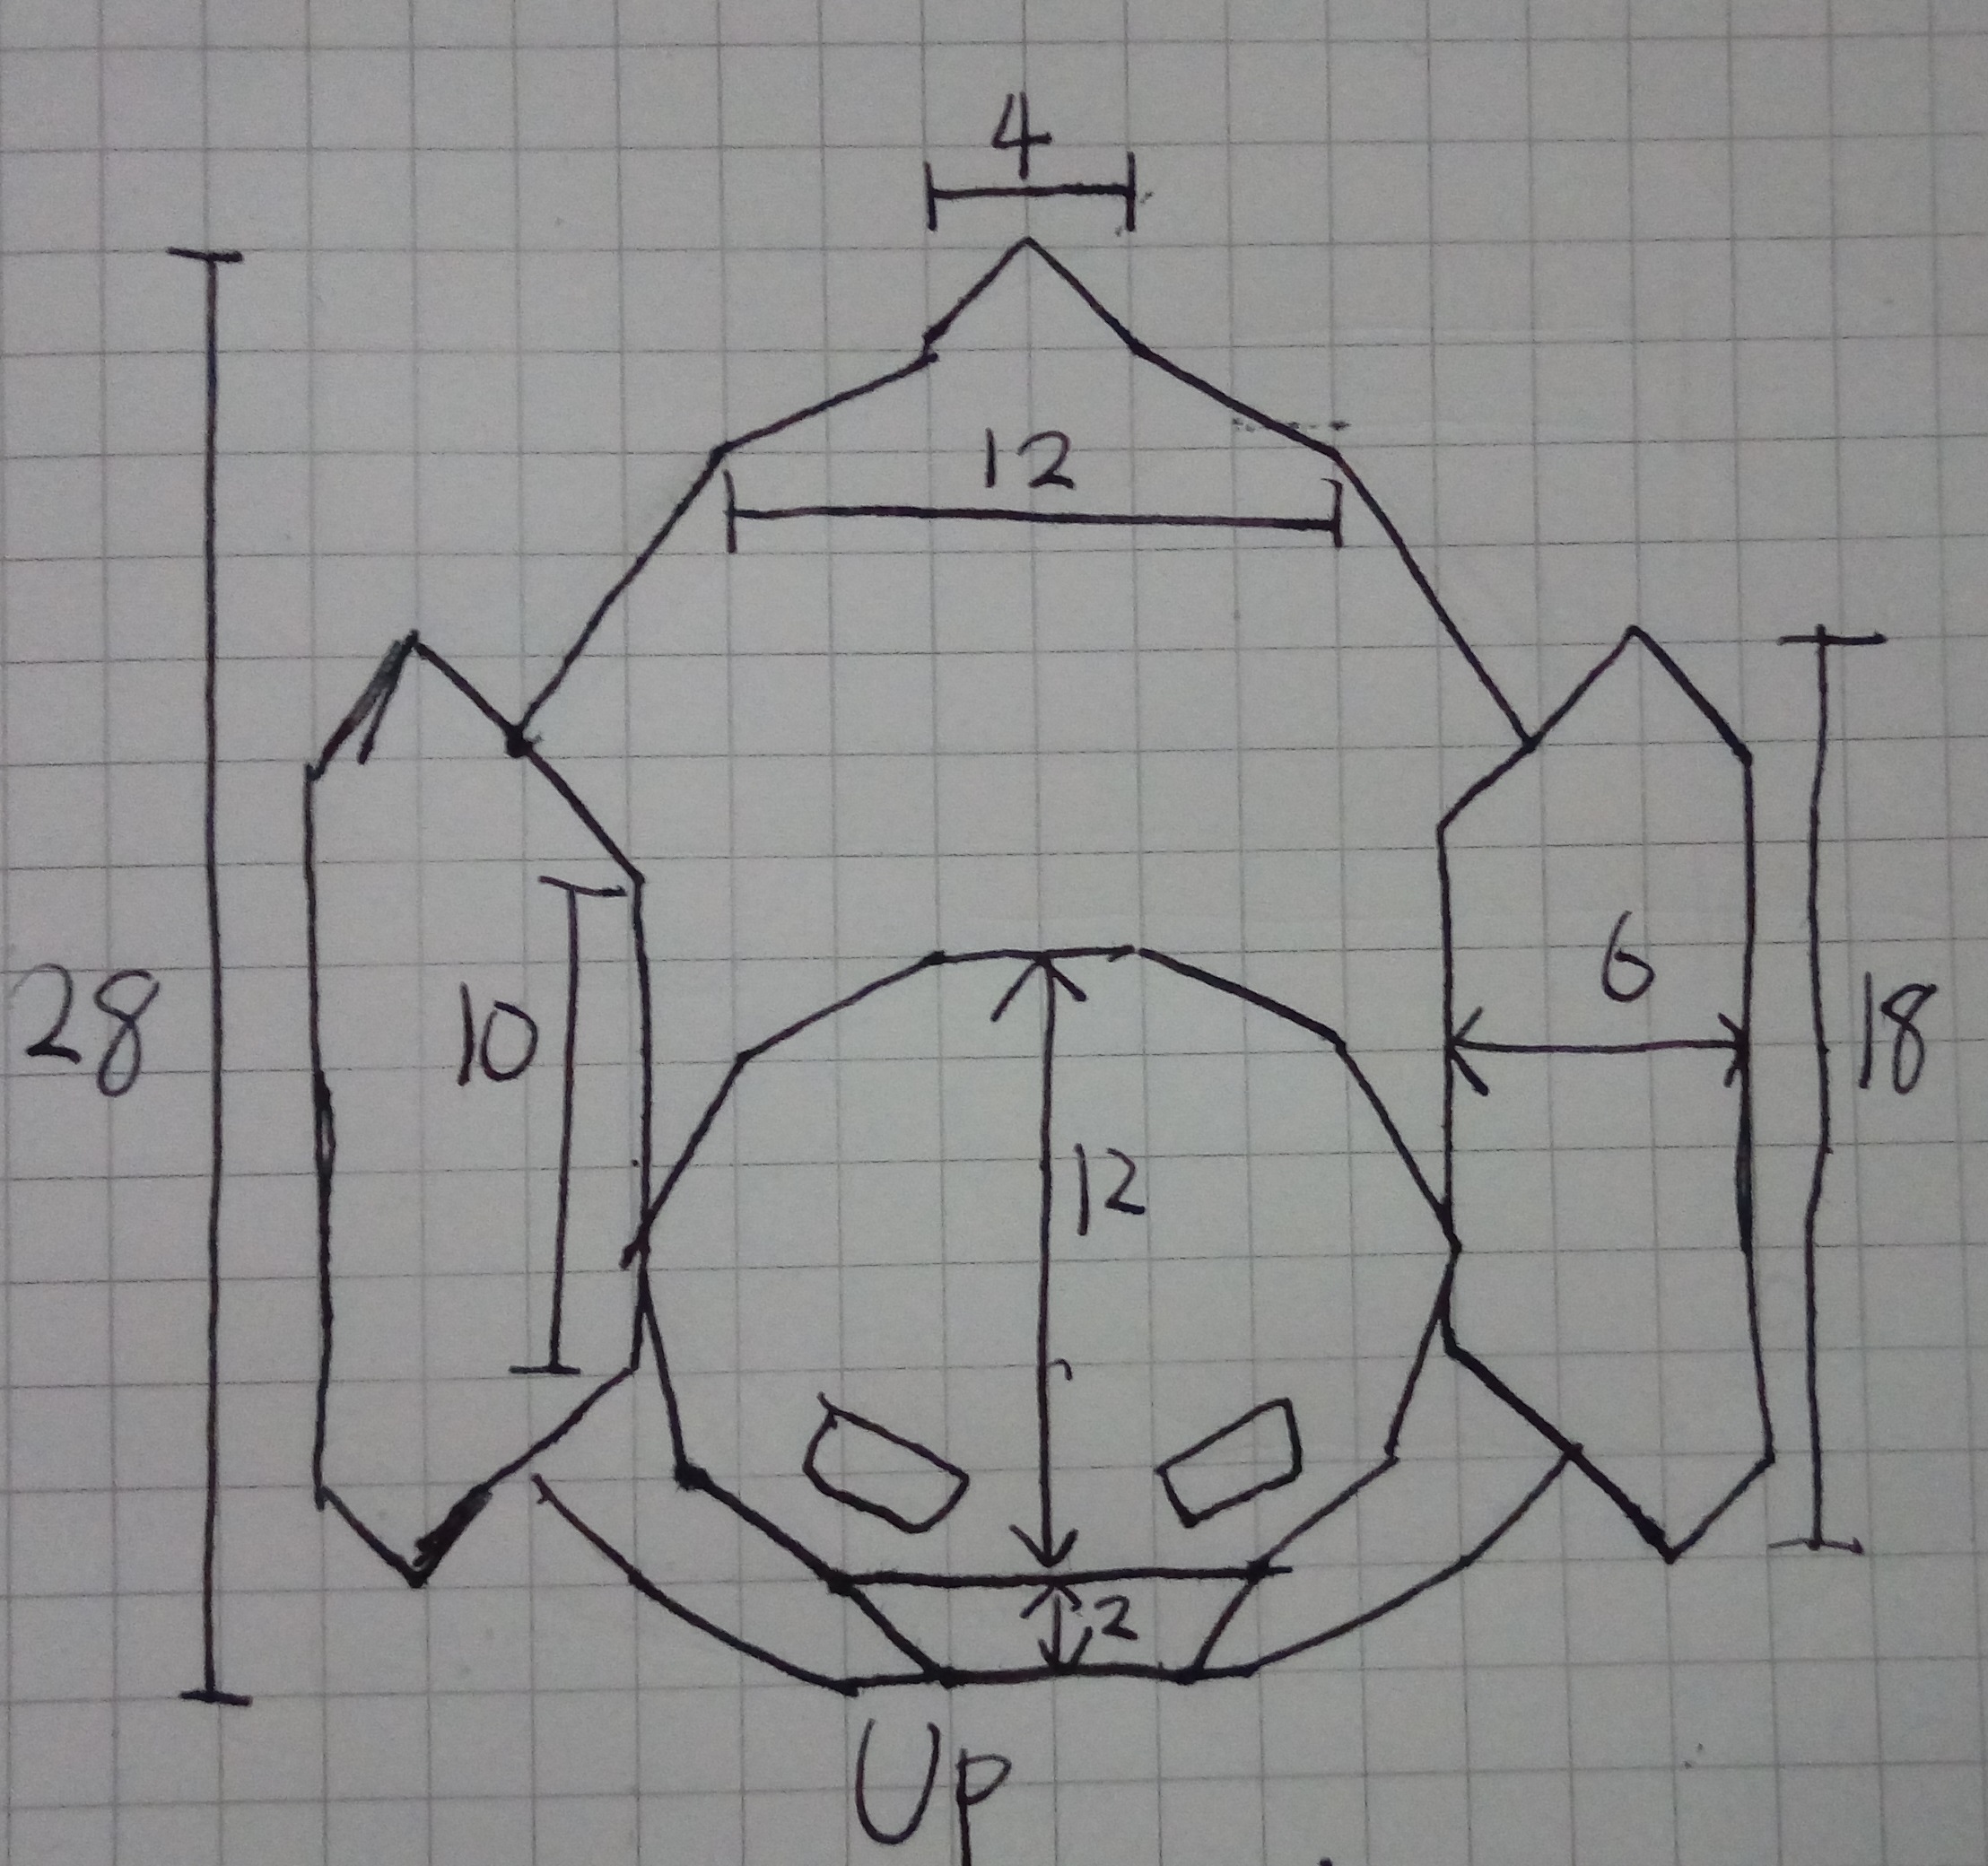 4
12
28
10
6
18
12
2
Up